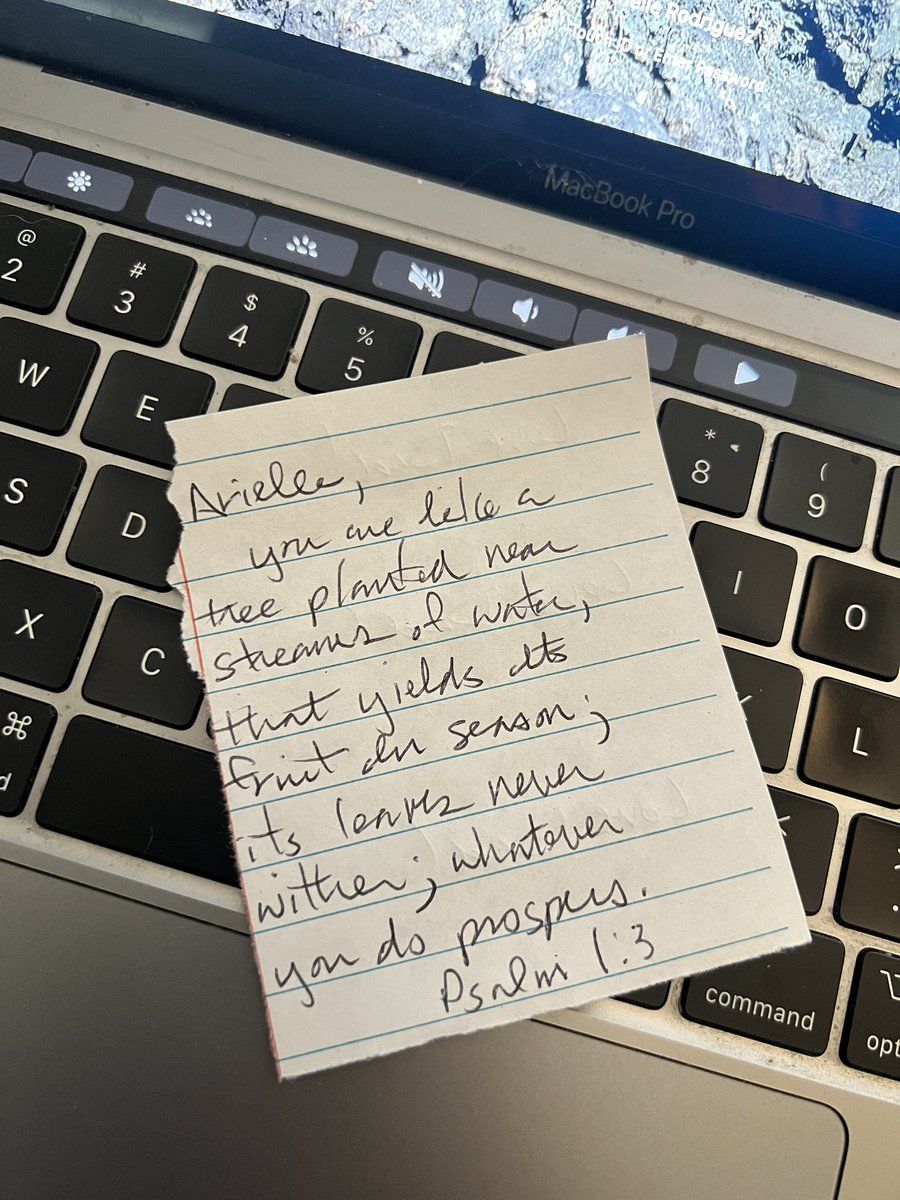 elle Rodriguez
Touch ID or Enter Password
MacBook Pro
@
2
#
3
$
4
%
5
*
8
(
9
W
E
S
D
I
O
X
C
L
⌘
d
command
opt
Arielle,
you are like a
tree planted near
streams of water,
that yields its
fruit in season;
its leaves never
wither; whatever
you do prospers.
Psalm 1:3